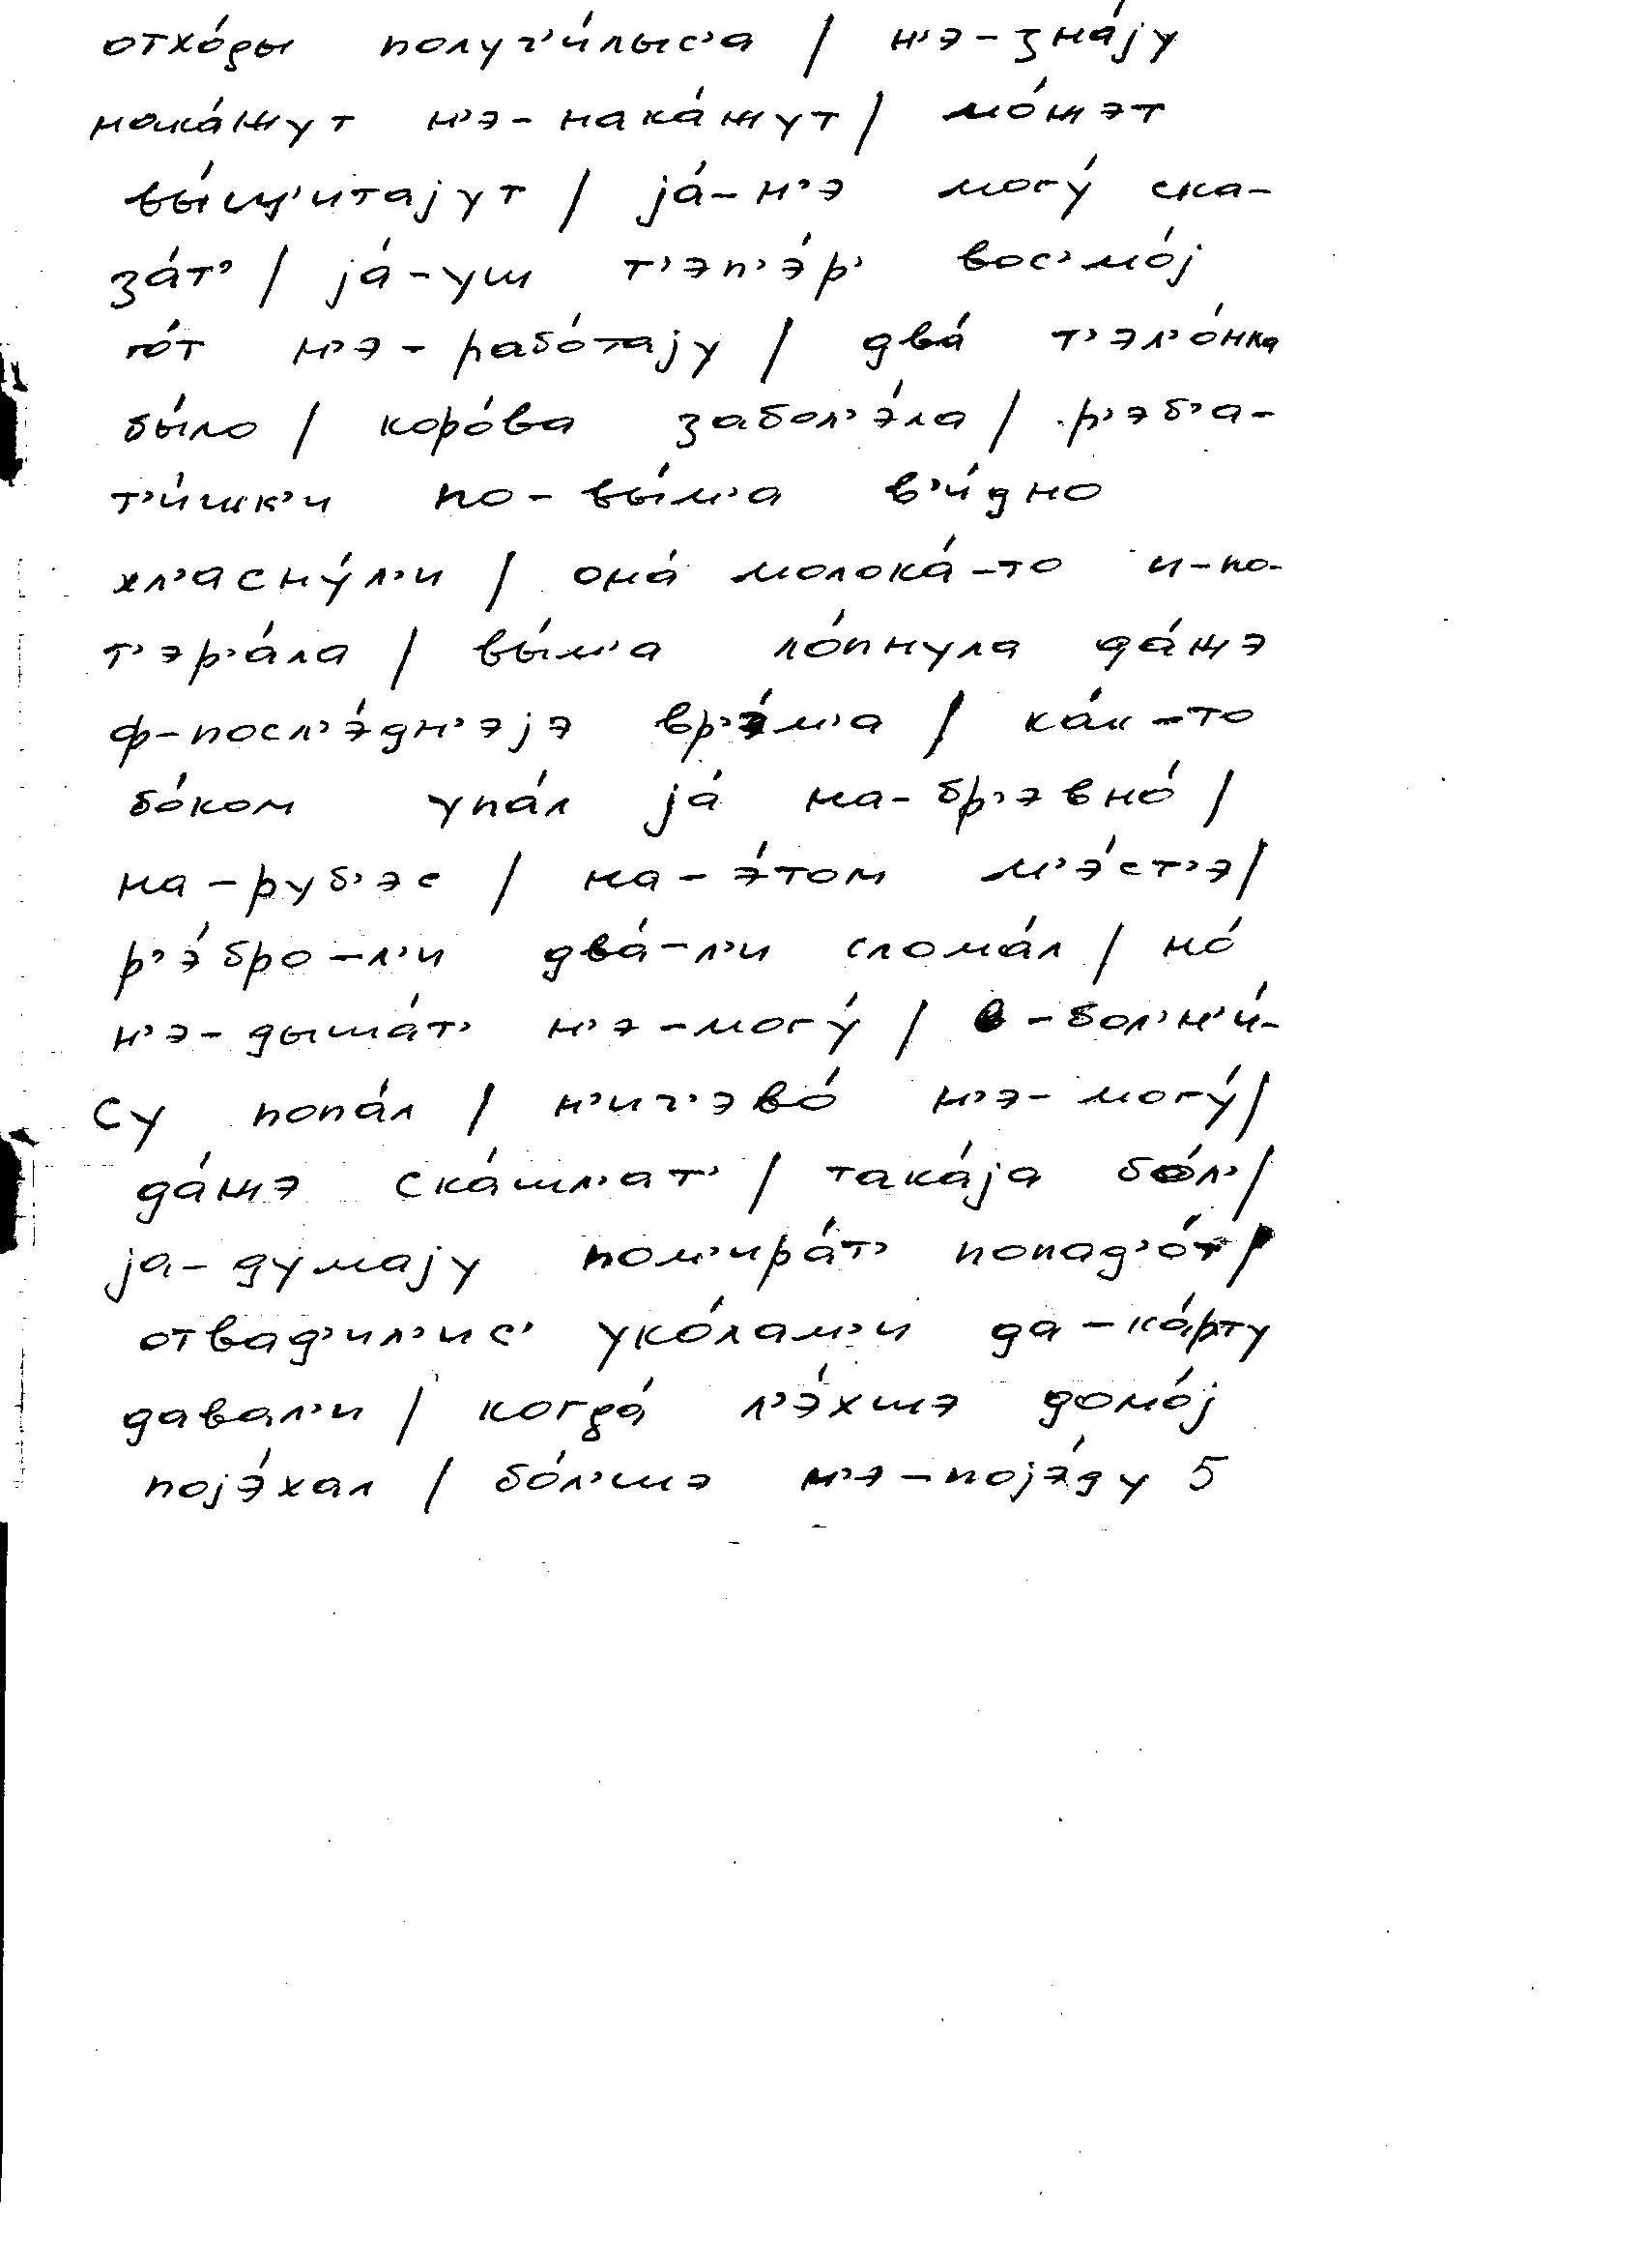 отхо́ды получ'и́лыс'а / н'э-зна́jу
нака́жут н'э-нака́жут / мо́жэт
вы́щ'итаjут / jа́-н'э могу́ ска-
за́т' / jа́-уш т'эп'э́р' вос'мо́j
го́т н'э-рабо́таjу / два́ т'эл'о́нка
бы́ло / коро́ва забол'э́ла / р'эб'а-
т'и́шк'и по-вы́м'а в'и́дно
хл'асну́л'и / она́ молока́-то и-по-
т'эр'а́ла / вы́м'а ло́пнула да́жэ
ф-посл'э́дн'эjэ вр'э́м'а / ка́к-то
бо́ком упа́л jа́ на-бр'эвно́ /
на-руб'эс / на-э́том м'э́ст'э /
р'э́бро-л'и два́-л'и слома́л / но́
н'э-дыша́т' н'э-могу́ / в-бол'н'и́-
су попа́л / н'ич'эво́ н'э-могу́ /
да́жэ ска́шл'ат' / така́jа бо́л' /
jа-думаjу пом'ира́т' попад'о́т /
отвад'ил'ис' уко́лам'и да-ка́рту
давал'и / когда́ л'э́хшэ домо́j
поjэ́хал / бо́л'шэ н'э-поjэ́ду 5